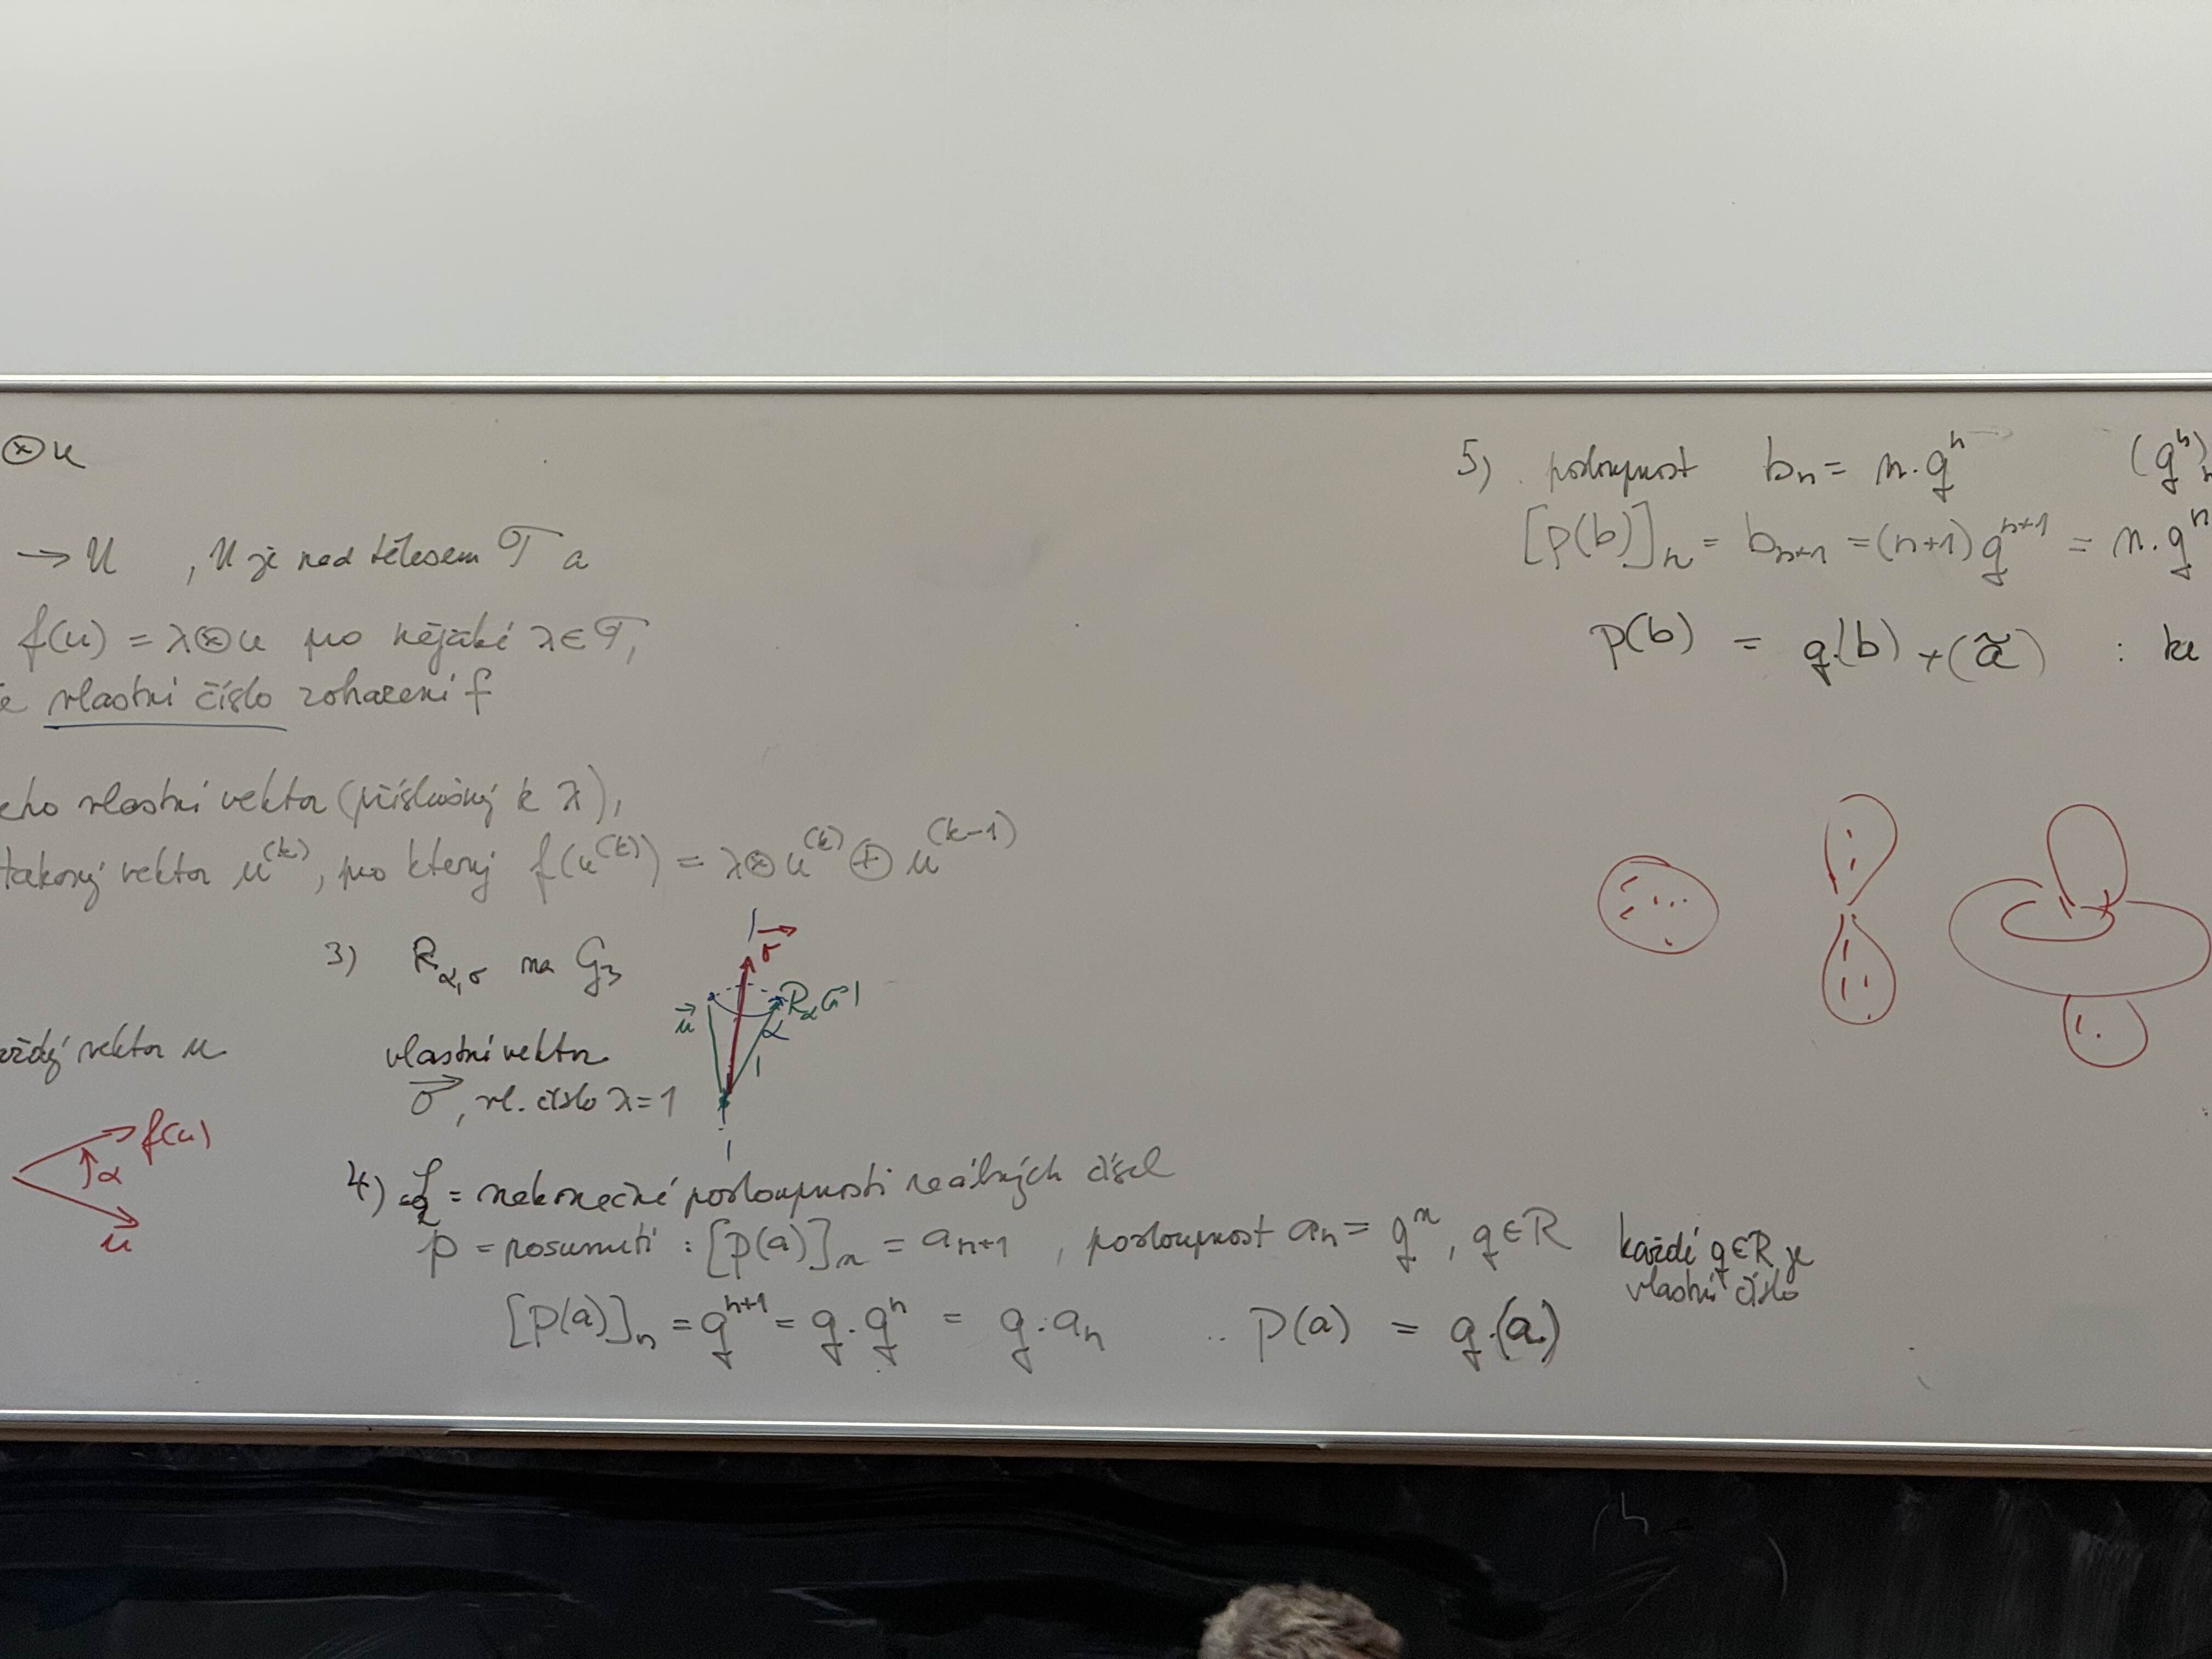 ⊗u
→ U , U je nad tělesem T a
f(u) = λ⊗u pro nějaké λ∈T,
vlastní číslo zobrazení f
vlastní vektor (příslušný k λ),
takový vektor u^(k), pro který f(u^(k)) = λ⊗u^(k) ⊕ u^(k-1)
3) R_α,σ na G₃
vlastní vektor
σ⃗, vl. číslo λ=1
σ⃗
u⃗
R_α(u⃗)
α
vektor u
f(u)
α
u⃗
4) = nekonečné posloupnosti reálných čísel
p = posunutí : [p(a)]_n = a_n+1 , posloupnost a_n = q^n, q∈R
každé q∈R je
vlastní číslo
[p(a)]_n = q^n+1 = q.q^n = q.a_n .. p(a) = q.(a)
5) posloupnost b_n = n.q^n (q^n)
[p(b)]_n = b_n+1 = (n+1)q^n+1 = n.q^n
p(b) = q.(b) + (ã) :